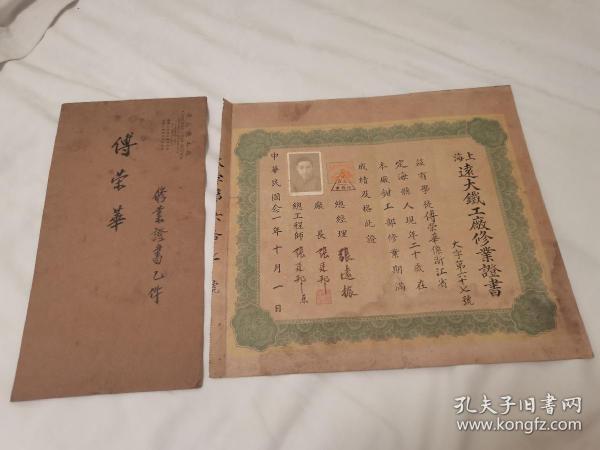 上海遠大鐵工廠修業證書
大字第六十七號
茲有學徒傅榮華係浙江省
定海縣人現年二十歲在
本廠鉗工部修業期滿
成績及格此證
總經理 張遠振
廠長 張廷邦
總工程師 張廷邦
中華民國念一年十月一日
傅榮華
修業證書乙件
孔夫子旧书网
www.kongfz.com